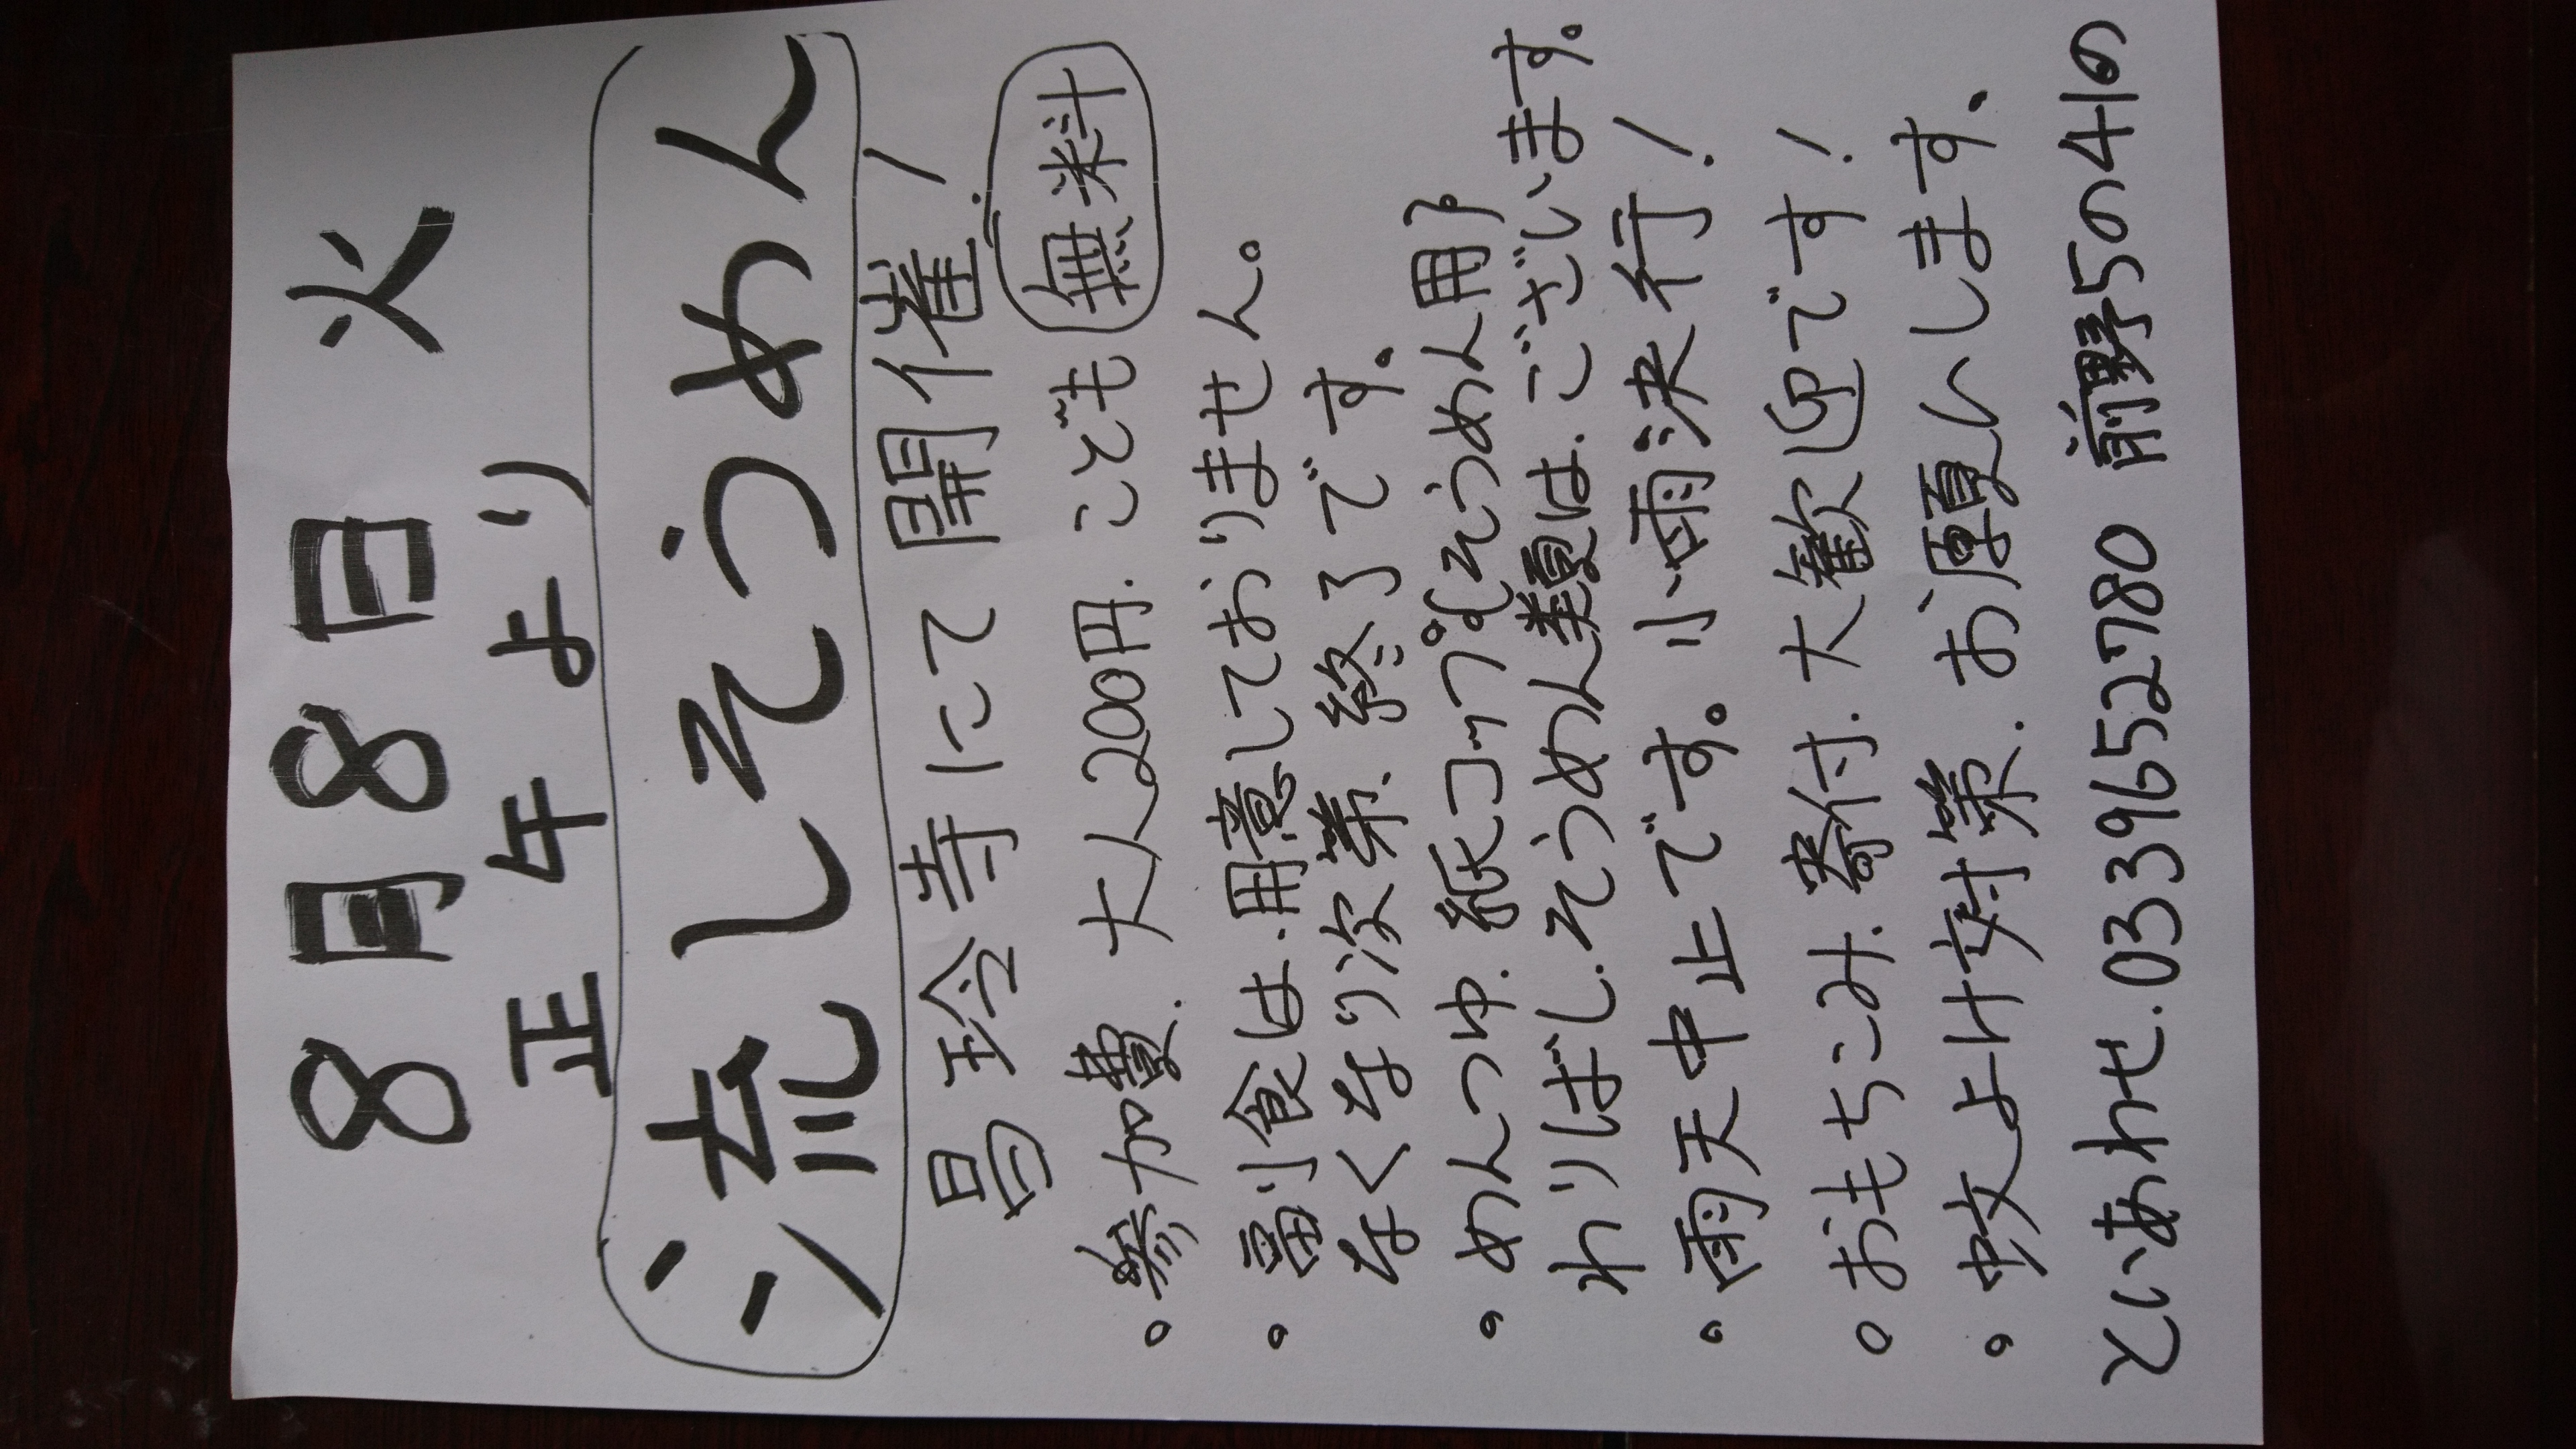 8月8日 火
正午より
流しそうめん
昜珍寺にて開催!
。参加費.大人200円.こども無料
。副食は.用意しておりません。
なくなり次第.終了です。
。めんつゆ.紙コップ{そうめん用}
わりばし.そうめん類は.ございます。
。雨天中止です。小雨決行!
。おもちこみ.寄付.大歓迎です!
。蚊よけ対策.お願いします。
といあわせ.0339652780 前野5の41の